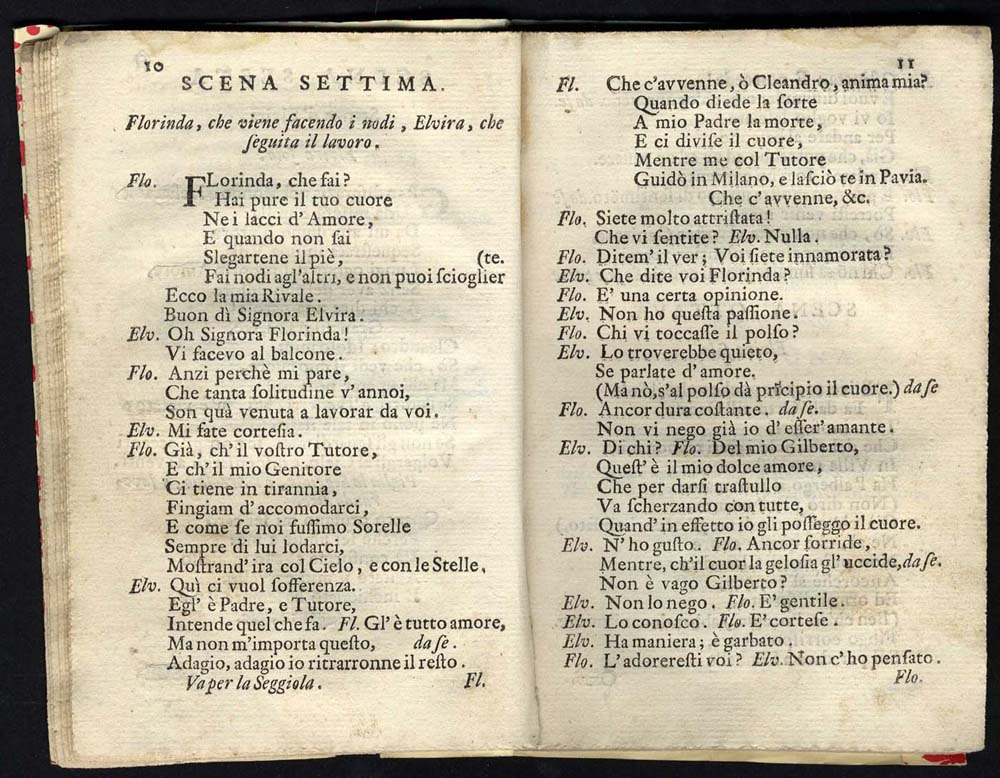 10
SCENA SETTIMA.
Florinda, che viene facendo i nodi, Elvira, che
ſeguita il lavoro.
Flo. FLorinda, che fai?
Hai pure il tuo cuore
Ne i lacci d' Amore,
E quando non ſai
Slegartene il piè, (te.
Fai nodi agl'altri, e non puoi ſcioglier
Ecco la mia Rivale.
Buon dì Signora Elvira.
Elv. Oh Signora Florinda!
Vi facevo al balcone.
Flo. Anzi perchè mi pare,
Che tanta ſolitudine v' annoi,
Son quà venuta a lavorar da voi.
Elv. Mi fate corteſia.
Flo. Già, ch'il voſtro Tutore,
E ch'il mio Genitore
Ci tiene in tirannia,
Fingiam d' accomodarci,
E come ſe noi fuſſimo Sorelle
Sempre di lui lodarci,
Moſtrand' ira col Cielo, e con le Stelle.
Elv. Quì ci vuol ſofferenza.
Egl' è Padre, e Tutore,
Intende quel che fa. Fl. Gl' è tutto amore,
Ma non m'importa queſto, da ſe.
Adagio, adagio io ritrarronne il reſto.
Va per la Seggiola. Fl.
11
Fl. Che c'avvenne, ò Cleandro, anima mia?
Quando diede la ſorte
A mio Padre la morte,
E ci diviſe il cuore,
Mentre me col Tutore
Guidò in Milano, e laſciò te in Pavia.
Che c'avvenne, &c.
Flo. Siete molto attriſtata!
Che vi ſentite? Elv. Nulla.
Flo. Ditem' il ver; Voi ſiete innamorata?
Elv. Che dite voi Florinda?
Flo. E' una certa opinione.
Elv. Non ho queſta paſſione.
Flo. Chi vi toccaſſe il polſo?
Elv. Lo troverebbe quieto,
Se parlate d' amore.
(Ma nò, s'al polſo dà pricipio il cuore.) da ſe
Flo. Ancor dura coſtante. da ſe.
Non vi nego già io d' eſſer' amante.
Elv. Di chi? Flo. Del mio Gilberto,
Queſt' è il mio dolce amore,
Che per darſi traſtullo
Va ſcherzando con tutte,
Quand' in effetto io gli poſſeggo il cuore.
Elv. N' ho guſto. Flo. Ancor ſorride,
Mentre, ch'il cuor la geloſia gl' uccide, da ſe.
Non è vago Gilberto?
Elv. Non lo nego. Flo. E' gentile.
Elv. Lo conoſco. Flo. E' corteſe.
Elv. Ha maniera; è garbato.
Flo. L' adorereſti voi? Elv. Non c' ho penſato.
Flo.